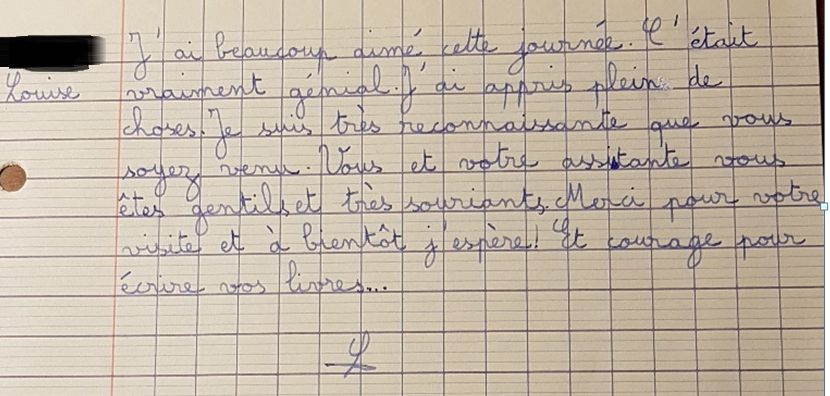 J'ai beaucoup aimé cette journée. C'était
Louise vraiment génial. J'ai appris plein de
choses. Je suis très reconnaissante que vous
soyez venu. Vous et votre assitante vous
êtes gentils et très souriants. Merci pour votre
visite et à bientôt j'espère! Et courage pour
écrire vos livres...
L